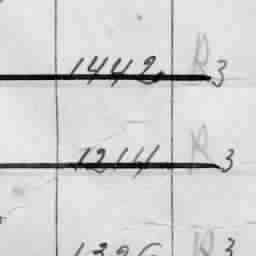 1442 R 3
1214 R 3
1396 R 3